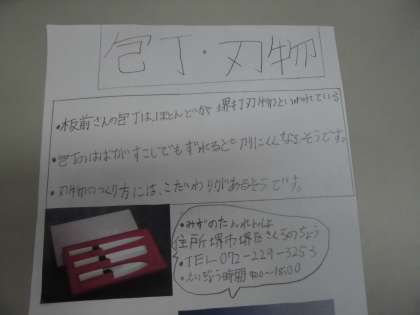 包丁・刃物
・板前さんの包丁は、ほとんどが堺打刃物といわれている
・包丁のはばがすこしでもずれると切りにくくなるそうです。
・刃物のつくり方には、こだわりがあるそうです。
・みずのたんれんじょ
住所 堺市堺区さくらのちょう
・TEL 072-229-3253
時間 9:00~18:00